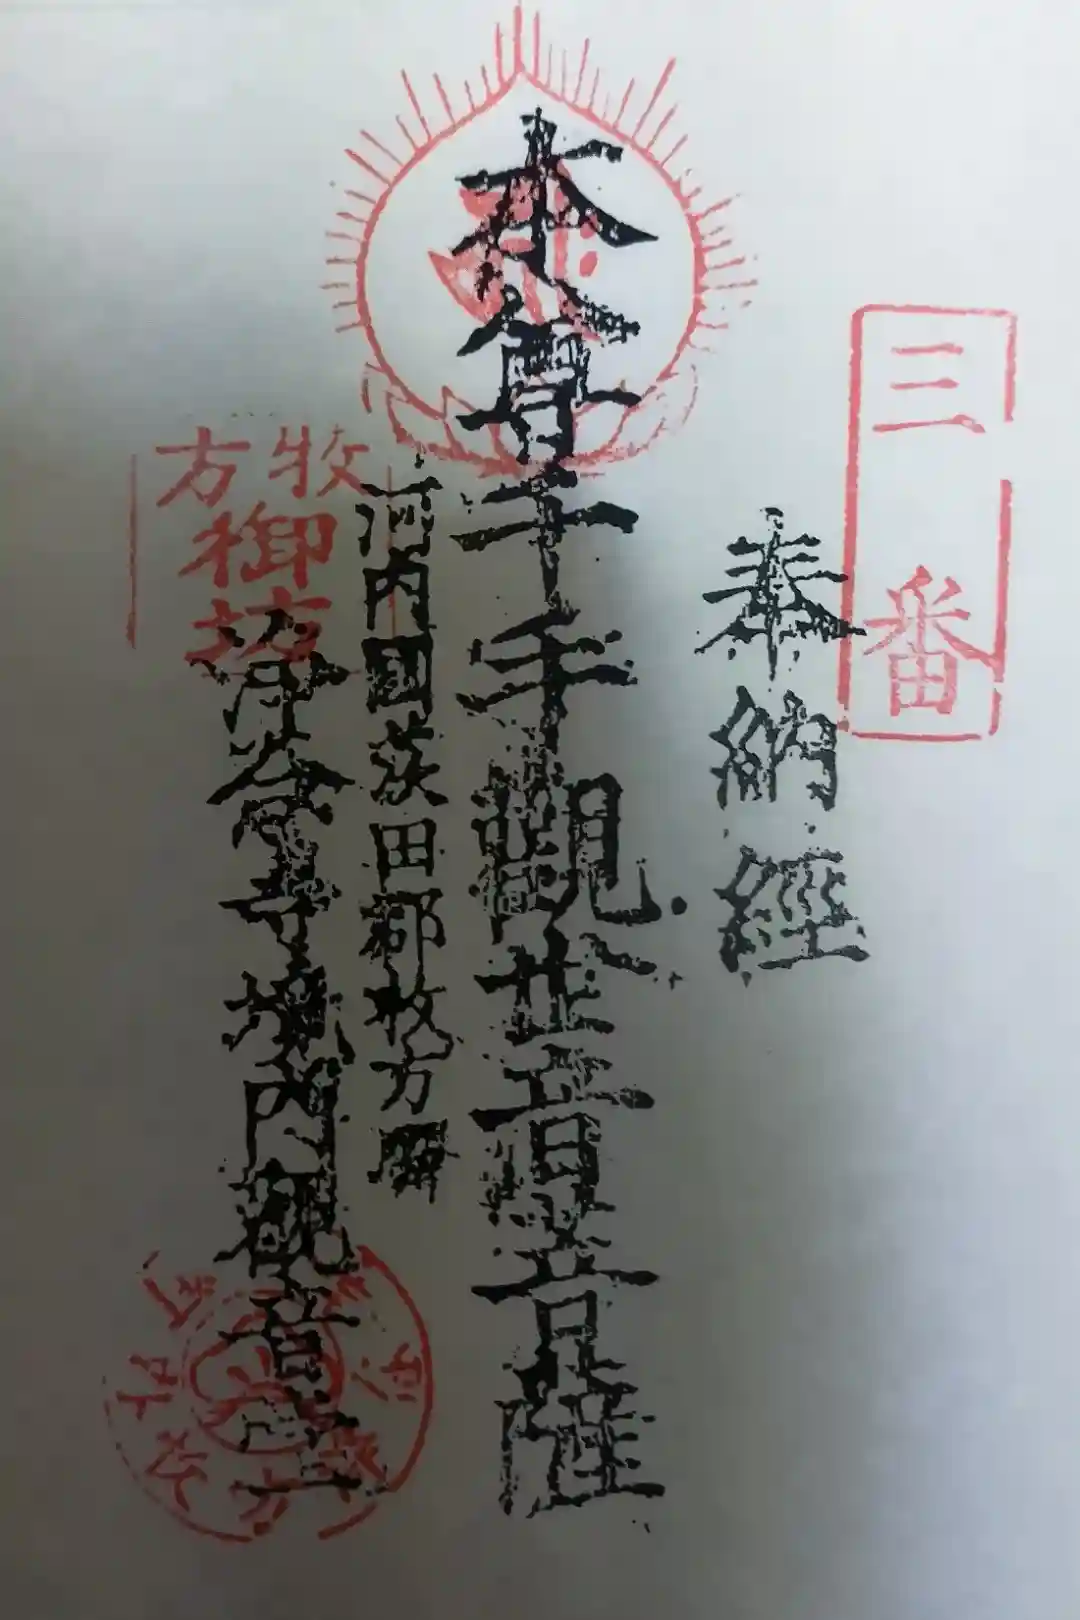 三番
奉納經
本尊千手觀世音菩薩
河内國茨田郡枚方驛
淨念寺境内観音堂
牧方
御坊